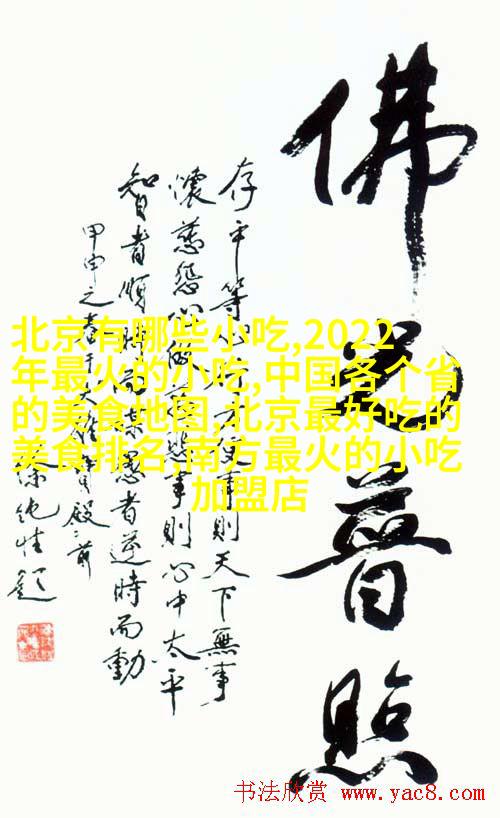 佛光普照
存平等心行方便事則天下無事
懷慈悲心做慈悲事則心中太平
智者順時而謀愚者逆時而動
甲申之春于大雄寶殿之前
北京有哪些小吃,2022
年最火的小吃,中国各个省
的美食地图,北京最好吃的
美食排名,南方最火的小吃
加盟店
书法欣赏 www.yac8.com